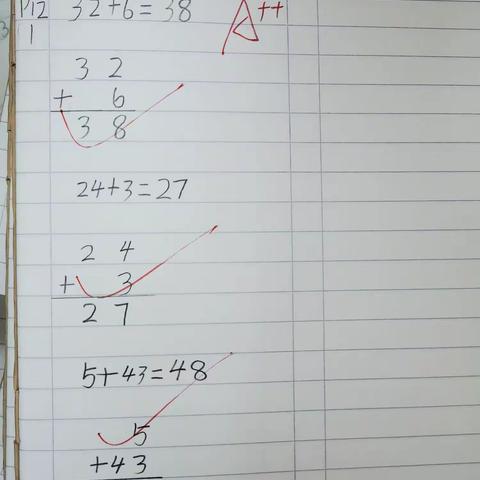 P12 32+6=38 A++
1
3 2
+ 6
3 8
24+3=27
2 4
+ 3
2 7
5+43=48
5
+43